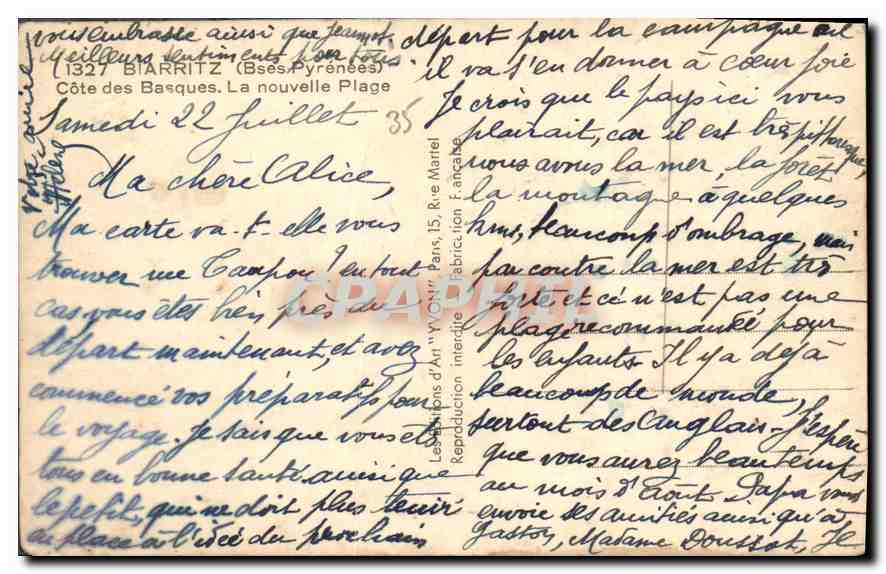 1327 BIARRITZ (Bses-Pyrénées)
Côte des Basques. La nouvelle Plage
Samedi 22 Juillet 35
Ma chère Alice,
Ma carte va-t-elle vous
trouver rue Campou? en tout
cas vous êtes bien près du
départ maintenant, et avez
commencé vos préparatifs pour
le voyage. Je sais que vous êtes
tous en bonne santé ainsi que
le petit, qui ne doit plus tenir
en place à l'idée du prochain
départ pour la campagne où
il va s'en donner à cœur joie
Je crois que le pays ici vous
plairait, car il est très pittoresque,
nous avons la mer, la forêt
la montagne à quelques
kms, beaucoup d'ombrage, mais
par contre la mer est très
forte et ce n'est pas une
plage recommandée pour
les enfants. Il y a déjà
beaucoup de monde,
surtout des Anglais. J'espère
que vous aurez beau temps
au mois d'Août. Papa vous
envoie ses amitiés ainsi qu'à
Gaston, Madame Doussot, Je
vous embrasse ainsi que Jeannot.
Meilleurs sentiments pour tous.
Votre amie
Hélène
Les Editions d'Art "YVON" Paris, 15, Rue Martel
Reproduction interdite Fabrication Française
CPAPHIL